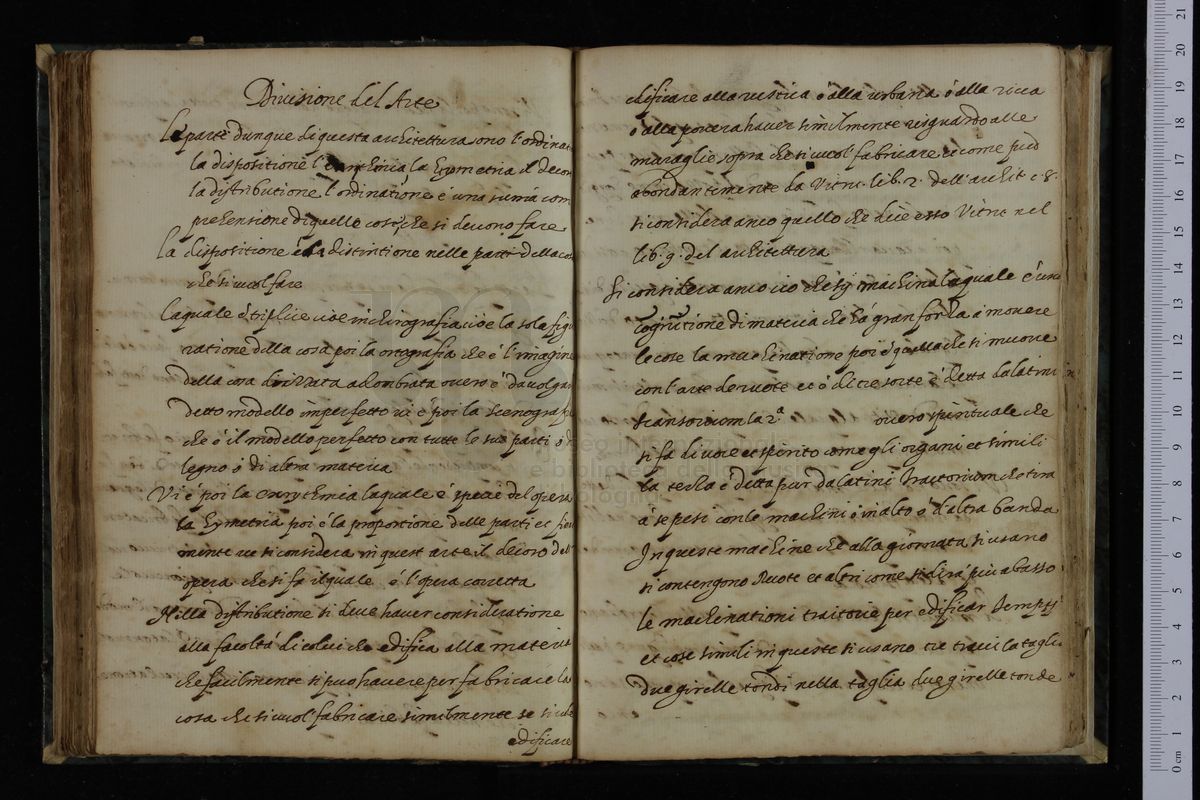 Divisione del Arte
Le parti dunque di questa architettura sono l'ordinat
la dispositione l' la Symetria il decor
la distributione l'ordinatione è una suma com
prehensione di quelle cose che si devono fare
la dispositione è la distintione nelle parti della co
che si vuol fare
laquale è triplice cioè inchnografia cioè la sola figu
ratione della cosa poi la ortografia che è l'imagine
della cosa adombrata overo è da volga
detto modello imperfetto vi è poi la scenografi
che è il modello perfetto con tutte le sue parti ò d
legno ò di altra materia
Vi è poi la Eurythmia laquale è spetie del opera
la Symetria poi è la proportione delle parti et
mente ve si considera in quest arte il decoro dell
opera che si fa ilquale è l'opera corretta
Nella distributione si deve haver consideratione
alla facoltà di colui che edifica alla materia
che facilmente si può havere per fabricare la
cosa che si vuol fabricare similmente se si vole
edificare
edificare alla rustica ò alla urbana ò alla ricca
ò alla povera haver similmente risguardo alle
muraglie sopra che si vuol fabricare come può
abondantemente da Vitru. lib. 2. dell'archit c. 8.
si considera anco quello che dice esso Vitru nel
lib. 9. del architettura
Si considera anco ciò che sij machina laquale è una
cogiutione di materia che hà gran forza à movere
le cose la machinatione poi è quella che si muove
con l'arte de ruote et è di tre sorte è detta da latini
scansorium la 2.a overo spirituale che
si fa di voce et spirito come gli organi et simili
la terza è detta pur da latini tractorium che tira
à se pesi con le machini ò in alto ò d'altra banda
In queste machine che alla giornata si usano
si contengono Ruote et altri come si dirà più abasso
le machinationi trattorie per edificar Tempij
et cose simili in queste si usano tre travi la taglia
due girelle tondi nella taglia due girelle tonde